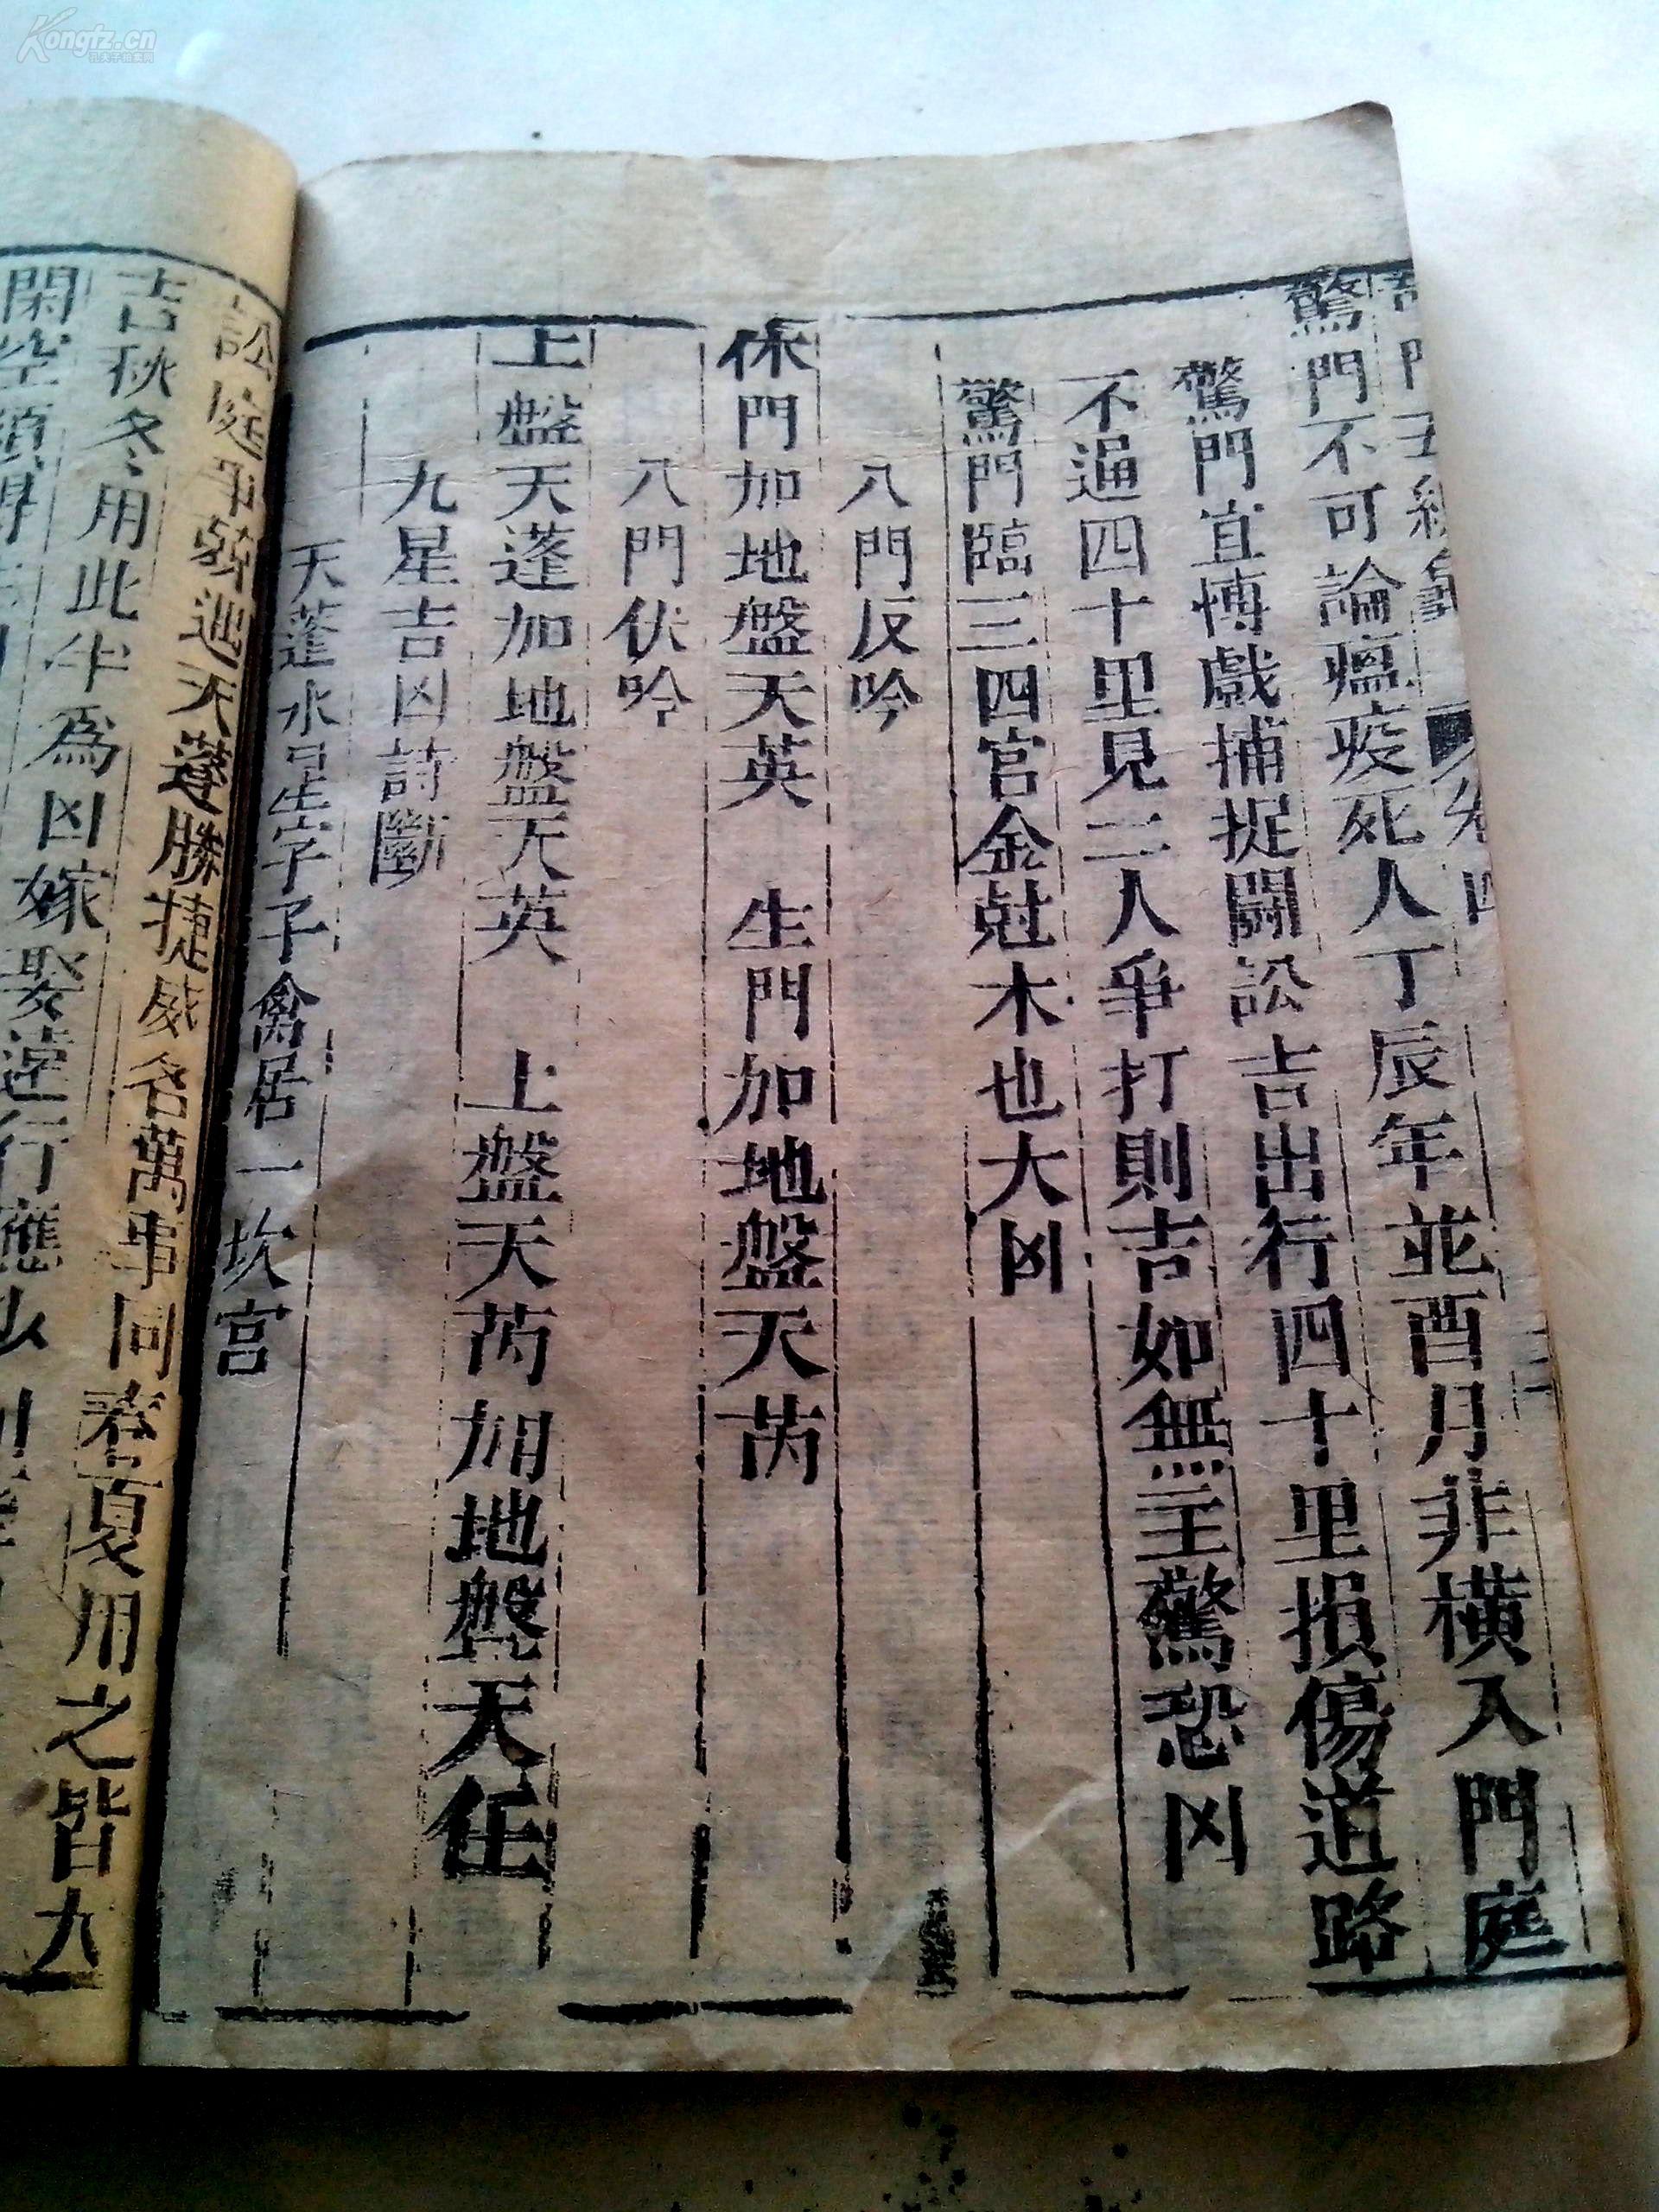 驚門不可論瘟疫死人丁辰年並酉月非橫入門庭
驚門宜愽戲捕捉鬪訟吉出行四十里損傷道路
不逼四十里見二人爭打則吉如無主驚恐凶
驚門臨三四宮金尅木也大凶
八門反吟
休門加地盤天英 生門加地盤天芮
八門伏吟
上盤天蓬加地盤天英 上盤天芮加地盤天任
九星吉凶詩斷
天蓬水星字子禽居一坎宮
訟庭爭 天蓬勝捷威名萬事同春夏用之皆
吉秋冬用此半爲凶嫁娶遠行應
Kongfz.cn